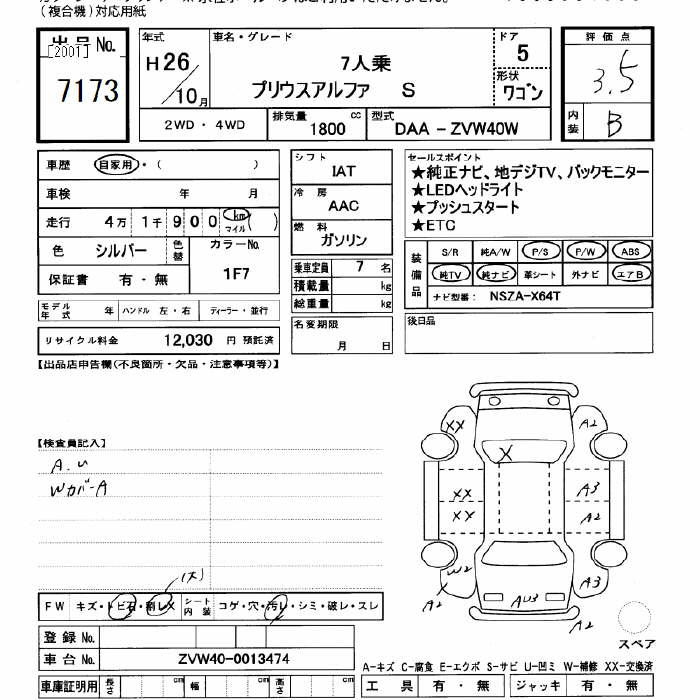 (複合機)対応用紙
出品 No.
[2001]
7173
年式
H26/10月
車名・グレード
7人乗
プリウスアルファ S
ドア
5
形状
ワゴン
評価点
3.5
内装
B
2WD・4WD
排気量
1800 cc
型式
DAA - ZVW40W
車歴 自家用・( )
車検 年 月
走行 4万 1千 900 km マイル ( )
色 シルバー 色替
カラーNo.
1F7
保証書 有・無
モデル年式 年 ハンドル 左・右 ディーラー・並行
リサイクル料金 12,030 円 預託済
シフト
IAT
冷房
AAC
燃料
ガソリン
乗車定員 7 名
積載量 kg
総重量 kg
名変期限
月 日
セールスポイント
★純正ナビ、地デジTV、バックモニター
★LEDヘッドライト
★プッシュスタート
★ETC
装備品
S/R 純A/W P/S P/W ABS
純TV 純ナビ 革シート 外ナビ エアB
ナビ型番: NSZA-X64T
後日品
【出品店申告欄(不良箇所・欠品・注意事項等)】
【検査員記入】
A.U
WカバーA
(大)
FW キズ・トビ石・割レX
シート内装 コゲ・穴・汚レ・シミ・破レ・スレ
登録 No.
車台 No. ZVW40-0013474
車庫証明用 長さ cm 幅 cm 高さ cm
XX
A2
X
XX
A3
XX
A2
W2
X
A2
AU3
A3
A2
スペア
A-キズ C-腐食 E-エクボ S-サビ U-凹ミ W-補修 XX-交換済
工具 有・無 ジャッキ 有・無